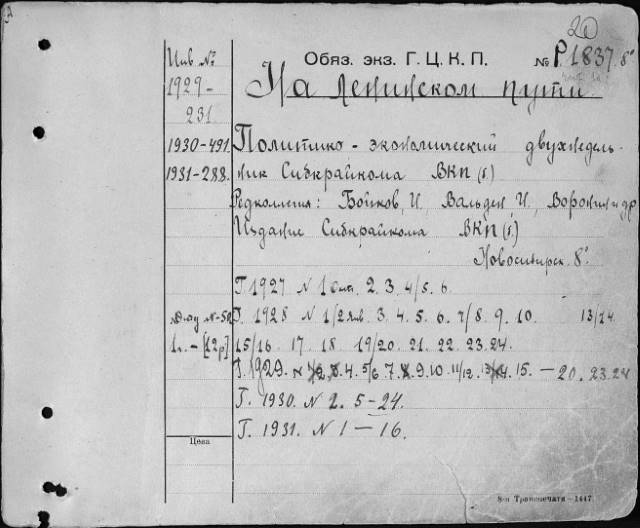 20
Инв №
Обяз. экз. Г. Ц. К. П.
№ Р.1837. 8°
1929-
231
На Ленинском пути
1930-491
Политико-экономический двухнедель-
1931-288.
ник Сибкрайкома ВКП(б)
Редколлегия: Бойков, И, Вальден, И, Воронин и др
Издание Сибкрайкома ВКП(б)
Новосибирск 8°
Г 1927 № 1 2. 3. 4/5. 6
Г. 1928 № 1/2 янв. 3. 4. 5. 6. 7/8. 9. 10. 13/14
1 [12р]
15/16. 17 18 19/20. 21. 22. 23. 24.
Г. 1929. № 4. 5/6 7. 9. 10. 11/12. 15. — 20. 23. 24
Г. 1930. № 2. 5-24.
Г. 1931. № 1 — 16.
Цена
8-я Транспечати — 1447